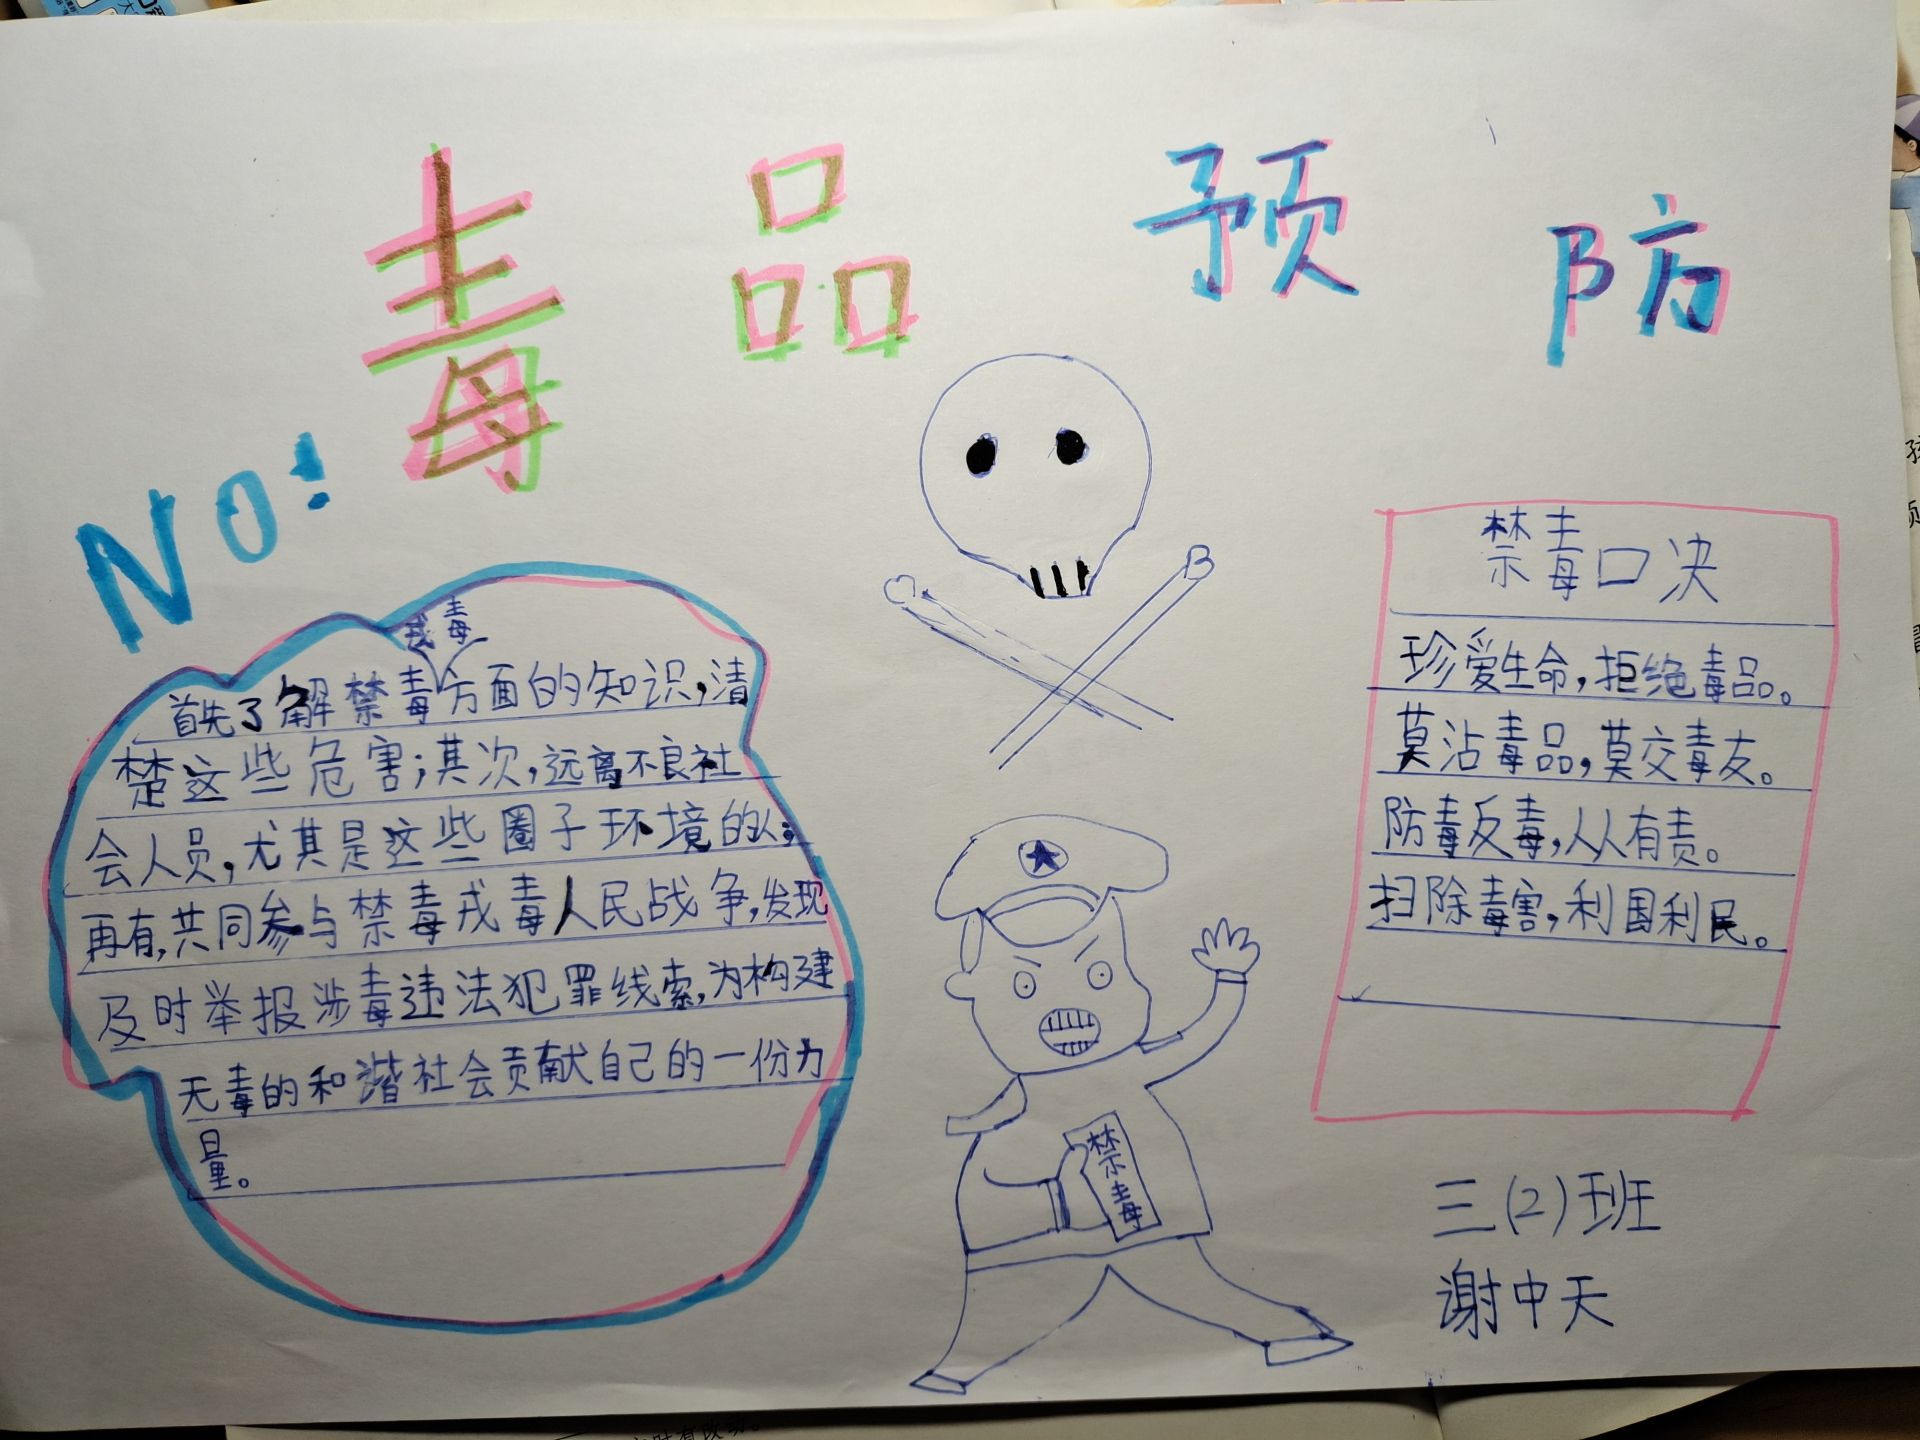 毒品预防
NO!
首先了解禁毒戎毒方面的知识,清
楚这些危害;其次,远离不良社
会人员,尤其是这些圈子环境的人;
再有,共同参与禁毒戎毒人民战争,发现
及时举报涉毒违法犯罪线索,为构建
无毒的和谐社会贡献自己的一份力
量。
禁毒
禁毒口决
珍爱生命,拒绝毒品。
莫沾毒品,莫交毒友。
防毒反毒,人人有责。
扫除毒害,利国利民。
三(2)班
谢中天